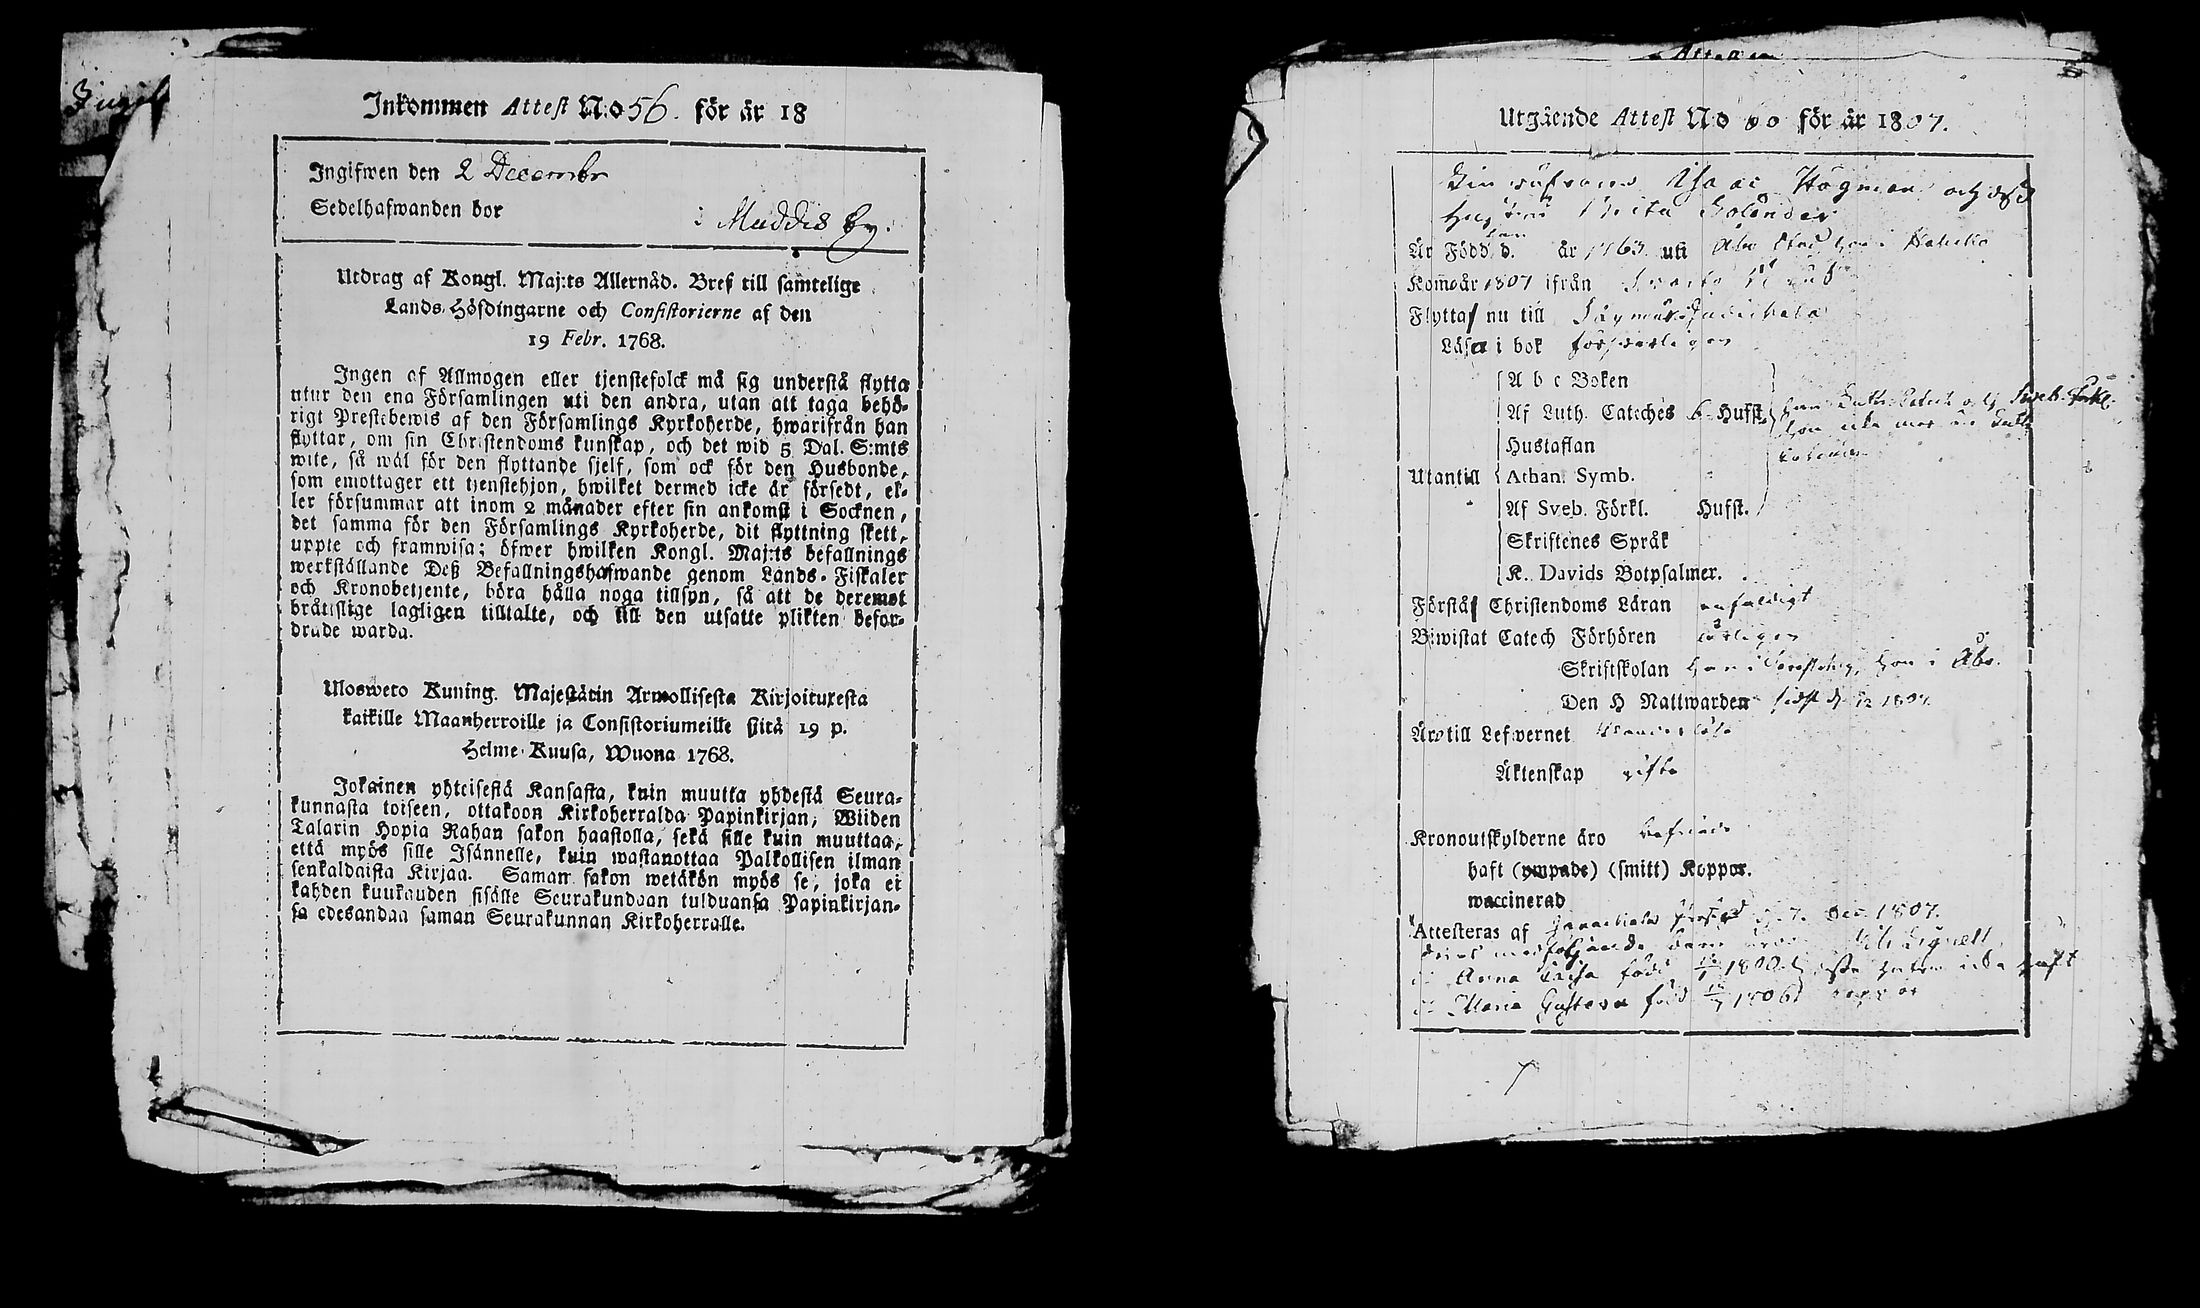 Inkommen Attest N:o 56. för år 18
Ingifwen den 2 Decembr
Sedelhafwanden bor i Muddis by.
Utdrag af Kongl. Maj:ts Allernåd. Bref till samtelige
Lands-Höfdingarne och Consistorierne af den
19 Febr. 1768.
Ingen af Allmogen eller tjenstefolck må sig understå flytta
utur den ena Församlingen uti den andra, utan att taga behö-
rigt Prestebewis af den Församlings Kyrkoherde, hwarifrån han
flyttar, om sin Christendoms kunskap, och det wid 5 Dal. S:mts
wite, så wäl för den flyttande sjelf, som ock för den Husbonde,
som emottager ett tjenstehjon, hwilket dermed icke är försedt, el-
ler försummar att inom 2 månader efter sin ankomst i Socknen,
det samma för den Församlings Kyrkoherde, dit flyttning skett,
uppte och framwisa; öfwer hwilken Kongl. Maj:ts befallnings
werkställande Deß Befallningshafwande genom Lands-Fiskaler
och Kronobetjente, böra hålla noga tillsyn, så att de deremot
bråttslige lagligen tilltalte, och till den utsatte plikten befor-
drade warda.
Ulosweto Kuning. Majestätin Armollisesta Kirjoituxesta
kaikille Maanherroille ja Consistoriumeille siitä 19 p.
Helme-Kuusa, Wuona 1768.
Jokainen yhteisestä Kansasta, kuin muutta yhdestä Seura-
kunnasta toiseen, ottakoon Kirkoherralda Papinkirjan; Wiiden
Talarin Hopia Rahan sakon haastolla, sekä sille kuin muuttaa,
että myös sille Isännelle, kuin wastanottaa Palkollisen ilman
senkaldaista Kirjaa. Saman sakon wetäkön myös se, joka ei
kahden kuukauden sisälle Seurakundaan tulduansa Papinkirjan-
sa edesandaa saman Seurakunnan Kirkoherralle.
Utgående Attest No 60 för år 1807.
Isaac Högman och dess
hustru Brita
Är Född d. år 1763 uti Åbo Stad hon i
Kom år 1807 ifrån
Flyttas nu till
Läsa i bok försvarligen
A b c Boken
Af Luth. Cateches 6 Hufst. han Luth. Catech och Sveb. Förkl.
hon icke mer än Luth.
Hustaflan
Utantill Athan. Symb.
Af Sveb. Förkl. Hufst.
Skriftenes Språk
K. Davids Botpsalmer.
Förstås Christendoms Läran enfaldigt
Biwistat Catech Förhören årligen
Skriftskolan han i hon i Åbo.
Den H Nattwarden sidst d. 1807
Äro till Lefwernet
Äktenskap gifta
Kronoutskylderne äro
haft (ympade) (smitt) Koppor.
waccinerad
Attesteras af d. 7. Dec. 1807.
medföljande barn
Anna Caisa född 1800
Maria Gustava född 1806